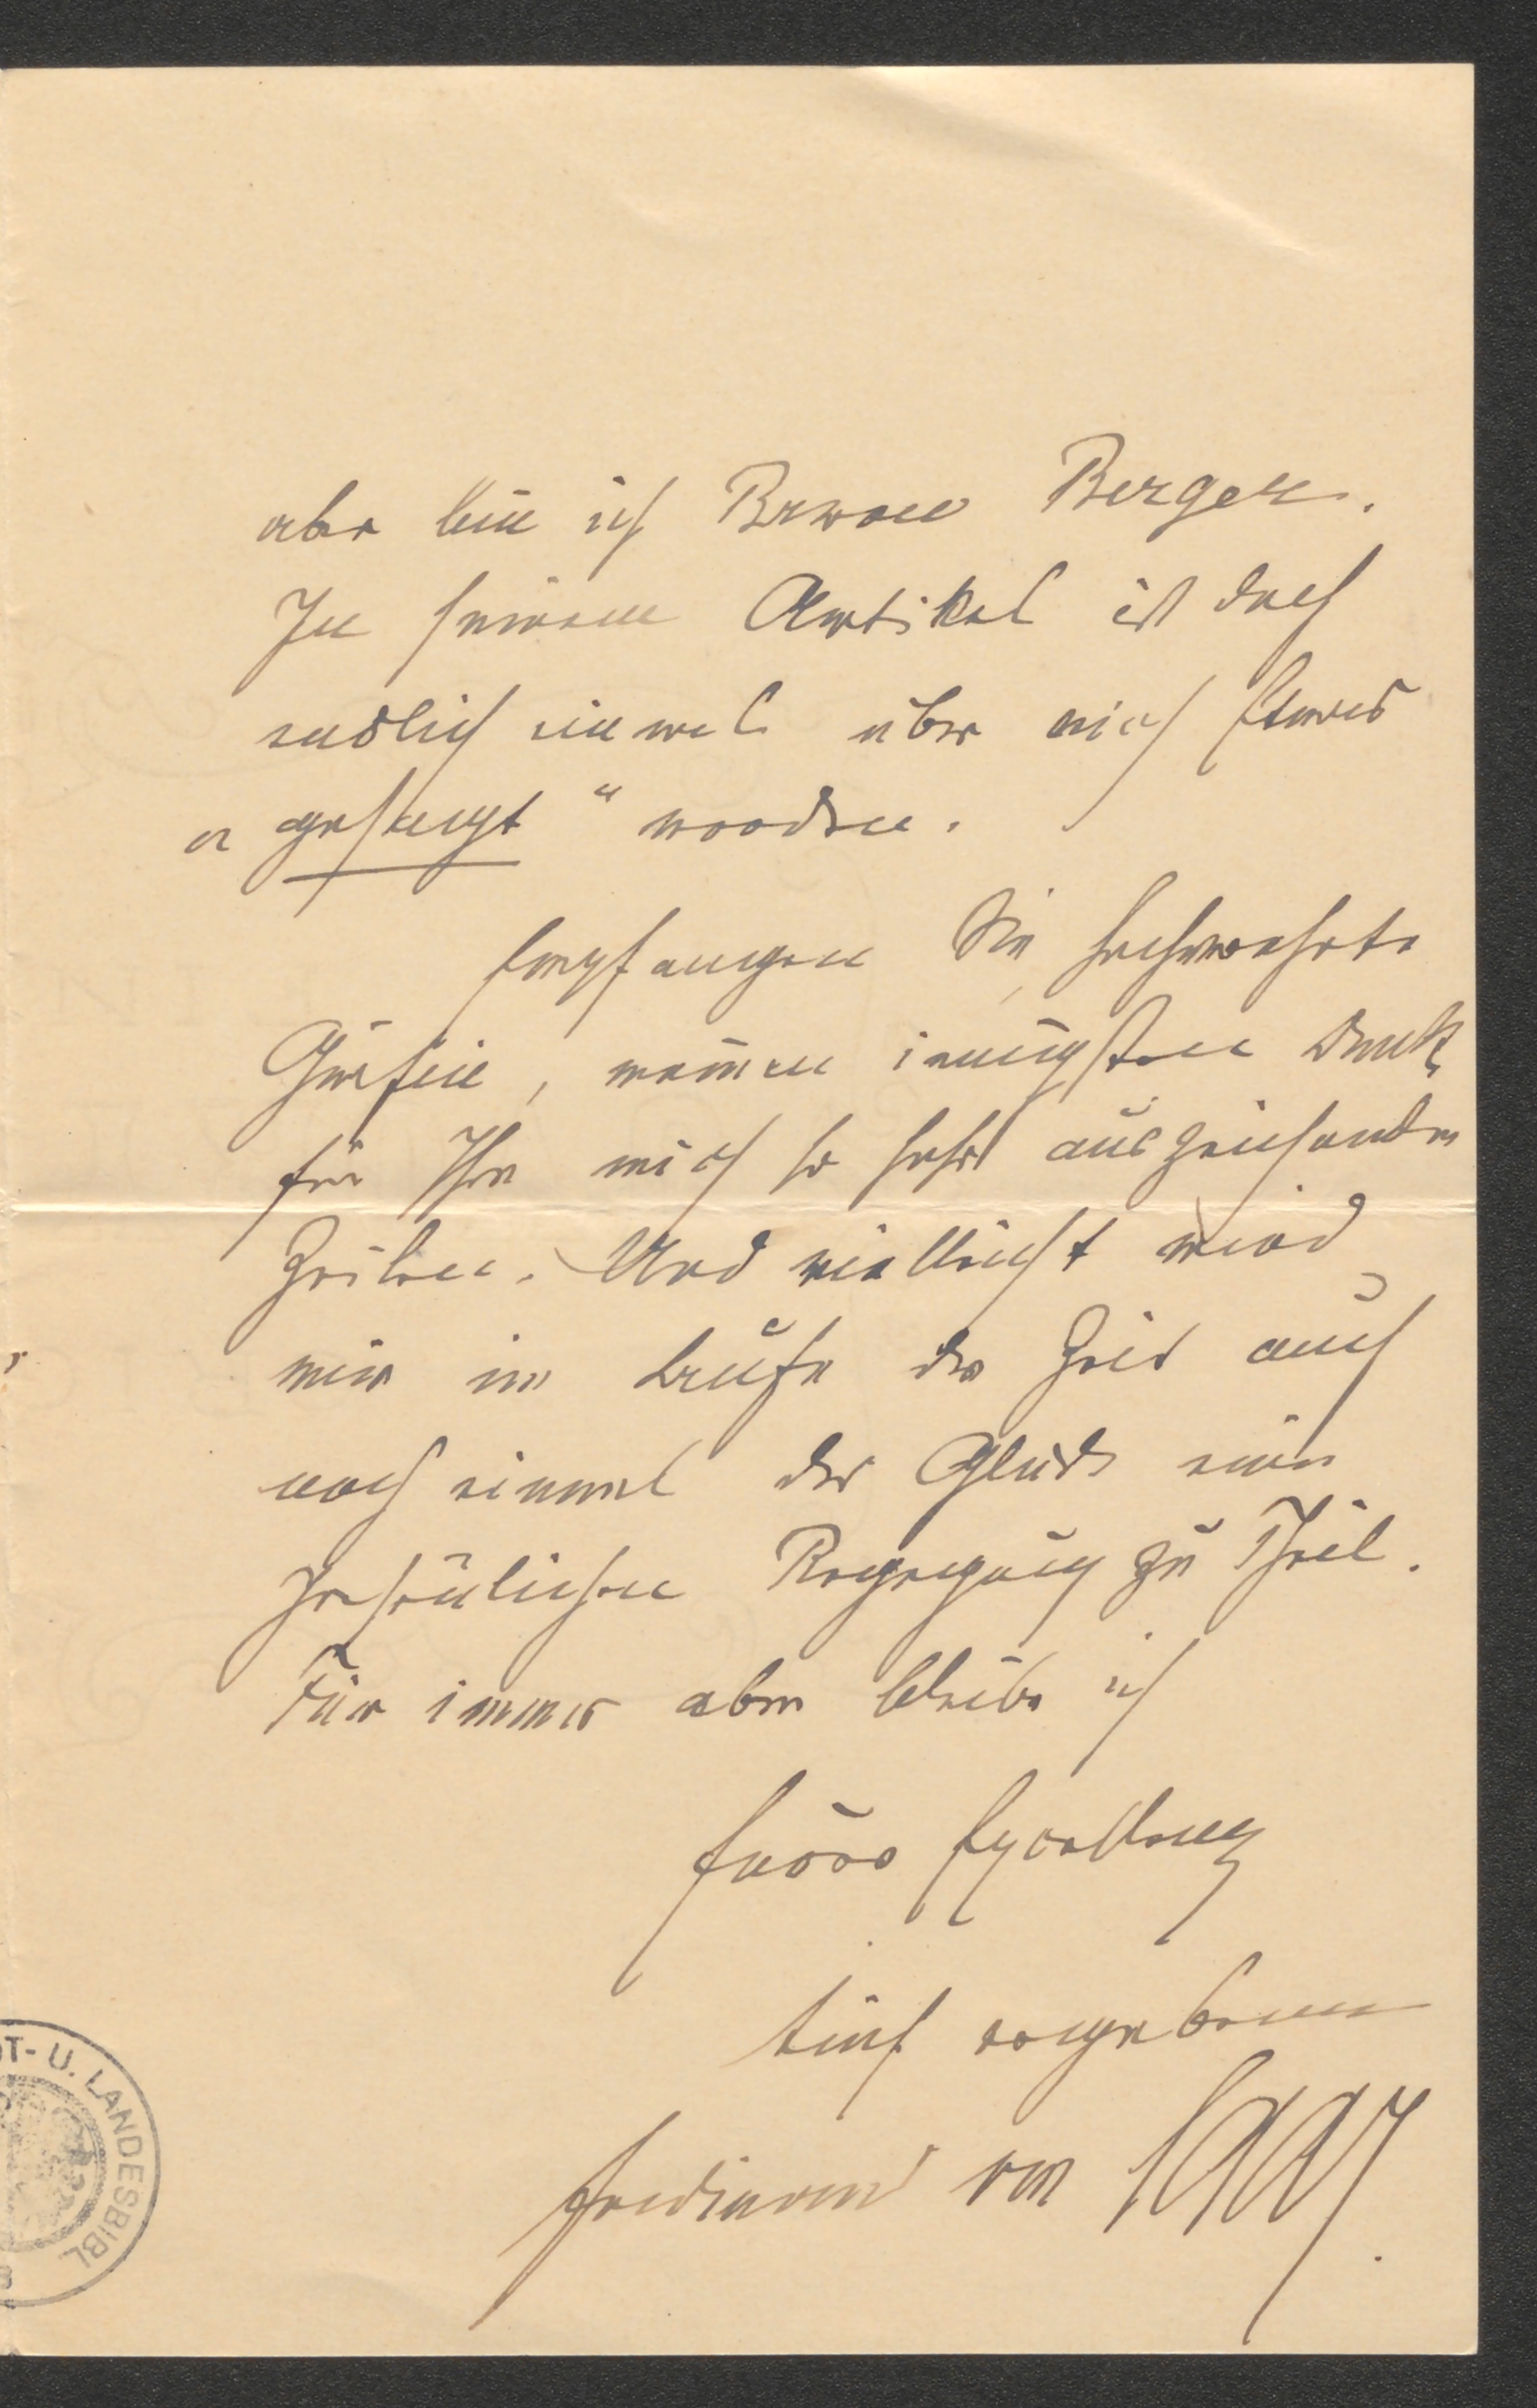 aber bin ich Baron Berger.
In seinem Artikel ist doch
endlich einmal über mich Etwas
„gesagt“ worden.
Empfangen Sie, hochverehrte
Gräfin, meinen innigsten Dank
für Ihre mich so sehr auszeichnenden
Zeilen. Und vielleicht wird
mir im Laufe der Zeit auch
noch einmal das Glück einer
persönlichen Begegnung zu Theil.
Für immer aber bleibe ich
Euerer Excellenz
tief ergebener
Ferdinand von Saar.
T- U. LANDESBIBL